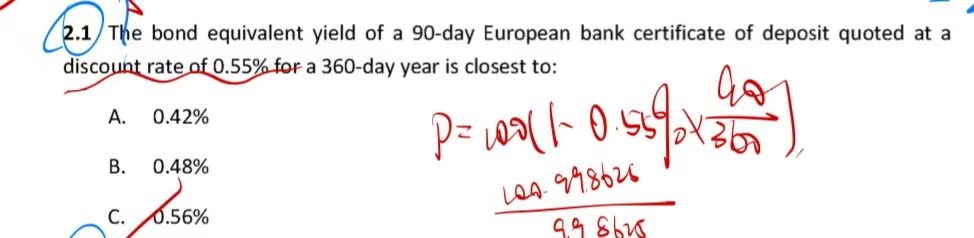 2.1 The bond equivalent yield of a 90-day European bank certificate of deposit quoted at a
discount rate of 0.55% for a 360-day year is closest to:
A. 0.42%
B. 0.48%
C. 0.56%
P=100(1-0.55%×90/360)
100-99.8625
99.8625